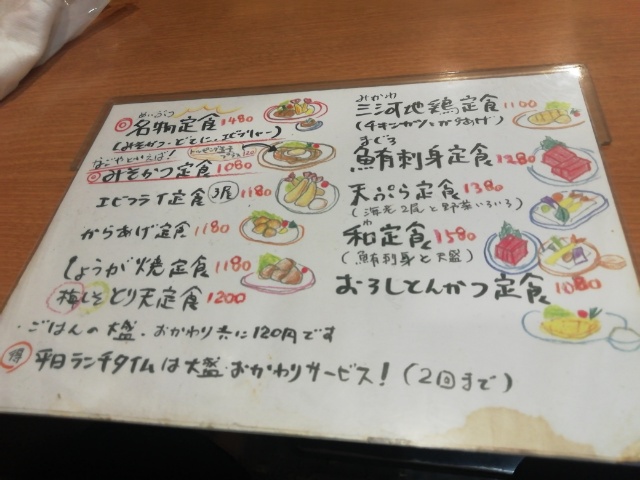 めいぶつ
名物定食 1480
(みそかつ、どてに、エビフリャー)
なごやといえば!
みそかつ定食 1080
エビフライ定食 3尾 1180
からあげ定食 1180
しょうが焼定食 1180
梅しそとり天定食 1200
みかわ
三河地鶏定食 1100
(チキンカツ、か からあげ)
まぐろ
鮪刺身定食 1280
天ぷら定食 1380
(海老2尾と野菜いろいろ)
わ
和定食 1580
(鮪刺身と天盛)
おろしとんかつ定食 1080
・ごはんの大盛・おかわり共に120円です
得 平日ランチタイムは大盛・おかわりサービス!(2回まで)